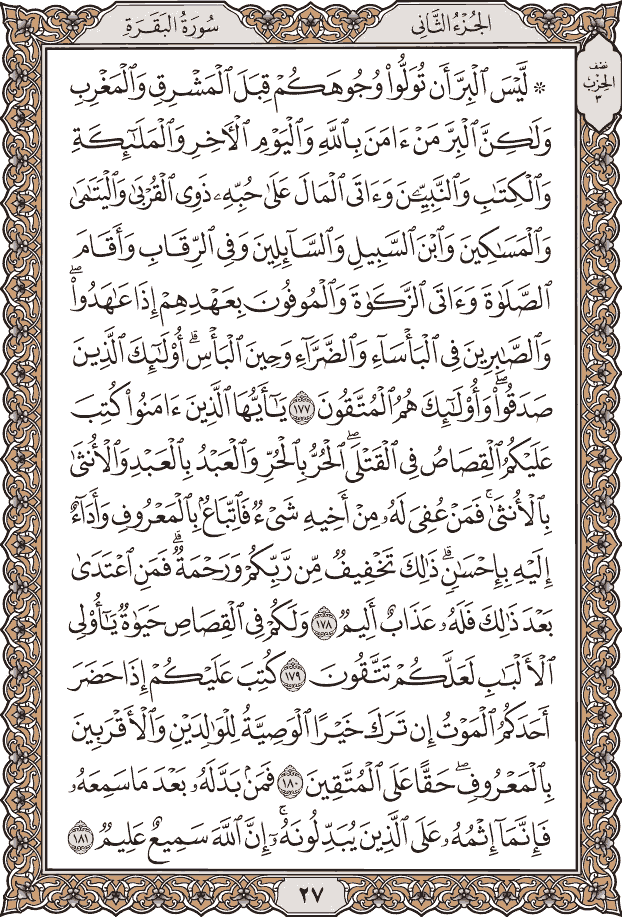 الجُزْءُ الثَّانِي
سُورَةُ البَقَرَةِ
نصف
الحِزْب
٣
۞ لَّيْسَ ٱلْبِرَّ أَن تُوَلُّوا۟ وُجُوهَكُمْ قِبَلَ ٱلْمَشْرِقِ وَٱلْمَغْرِبِ
وَلَـٰكِنَّ ٱلْبِرَّ مَنْ ءَامَنَ بِٱللَّهِ وَٱلْيَوْمِ ٱلْـَٔاخِرِ وَٱلْمَلَـٰٓئِكَةِ
وَٱلْكِتَـٰبِ وَٱلنَّبِيِّـۧنَ وَءَاتَى ٱلْمَالَ عَلَىٰ حُبِّهِۦ ذَوِى ٱلْقُرْبَىٰ وَٱلْيَتَـٰمَىٰ
وَٱلْمَسَـٰكِينَ وَٱبْنَ ٱلسَّبِيلِ وَٱلسَّآئِلِينَ وَفِى ٱلرِّقَابِ وَأَقَامَ
ٱلصَّلَوٰةَ وَءَاتَى ٱلزَّكَوٰةَ وَٱلْمُوفُونَ بِعَهْدِهِمْ إِذَا عَـٰهَدُوا۟ ۖ
وَٱلصَّـٰبِرِينَ فِى ٱلْبَأْسَآءِ وَٱلضَّرَّآءِ وَحِينَ ٱلْبَأْسِ ۗ أُو۟لَـٰٓئِكَ ٱلَّذِينَ
صَدَقُوا۟ ۖ وَأُو۟لَـٰٓئِكَ هُمُ ٱلْمُتَّقُونَ ١٧٧ يَـٰٓأَيُّهَا ٱلَّذِينَ ءَامَنُوا۟ كُتِبَ
عَلَيْكُمُ ٱلْقِصَاصُ فِى ٱلْقَتْلَى ۖ ٱلْحُرُّ بِٱلْحُرِّ وَٱلْعَبْدُ بِٱلْعَبْدِ وَٱلْأُنثَىٰ
بِٱلْأُنثَىٰ ۚ فَمَنْ عُفِىَ لَهُۥ مِنْ أَخِيهِ شَىْءٌ فَٱتِّبَاعٌۢ بِٱلْمَعْرُوفِ وَأَدَآءٌ
إِلَيْهِ بِإِحْسَـٰنٍ ۗ ذَٰلِكَ تَخْفِيفٌ مِّن رَّبِّكُمْ وَرَحْمَةٌ ۗ فَمَنِ ٱعْتَدَىٰ
بَعْدَ ذَٰلِكَ فَلَهُۥ عَذَابٌ أَلِيمٌ ١٧٨ وَلَكُمْ فِى ٱلْقِصَاصِ حَيَوٰةٌ يَـٰٓأُو۟لِى
ٱلْأَلْبَـٰبِ لَعَلَّكُمْ تَتَّقُونَ ١٧٩ كُتِبَ عَلَيْكُمْ إِذَا حَضَرَ
أَحَدَكُمُ ٱلْمَوْتُ إِن تَرَكَ خَيْرًا ٱلْوَصِيَّةُ لِلْوَٰلِدَيْنِ وَٱلْأَقْرَبِينَ
بِٱلْمَعْرُوفِ ۖ حَقًّا عَلَى ٱلْمُتَّقِينَ ١٨٠ فَمَنۢ بَدَّلَهُۥ بَعْدَ مَا سَمِعَهُۥ
فَإِنَّمَآ إِثْمُهُۥ عَلَى ٱلَّذِينَ يُبَدِّلُونَهُۥٓ ۚ إِنَّ ٱللَّهَ سَمِيعٌ عَلِيمٌ ١٨١
٢٧